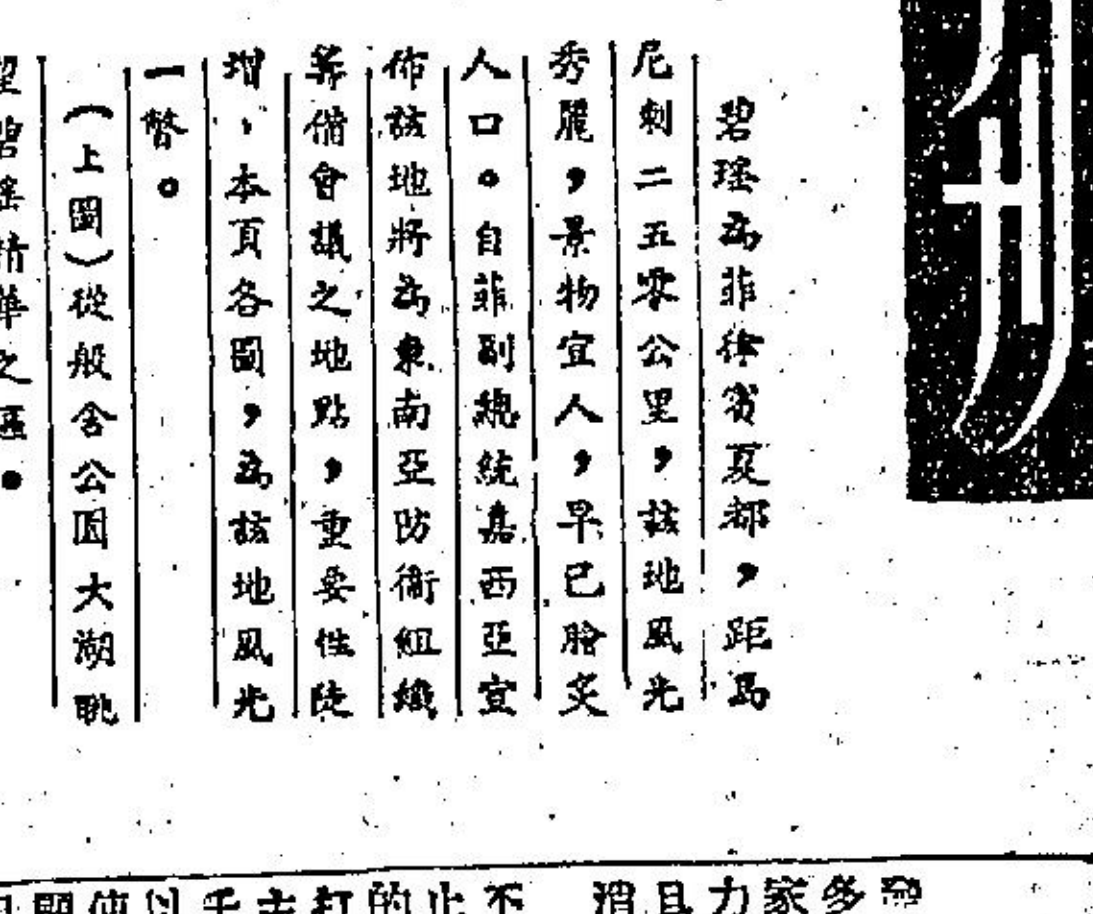 刊
碧瑤為菲律賓夏都，距馬
尼剌二五零公里，該地風光
秀麗，景物宜人，早已膾炙
人口。自菲副總統嘉西亞宣
佈該地將為東南亞防衛組織
籌備會議之地點，重要性陡
增，本頁各圖，為該地風光
一瞥。
（上圖）從般含公園大湖眺
望碧瑤精華之區。
多家力且
不止的